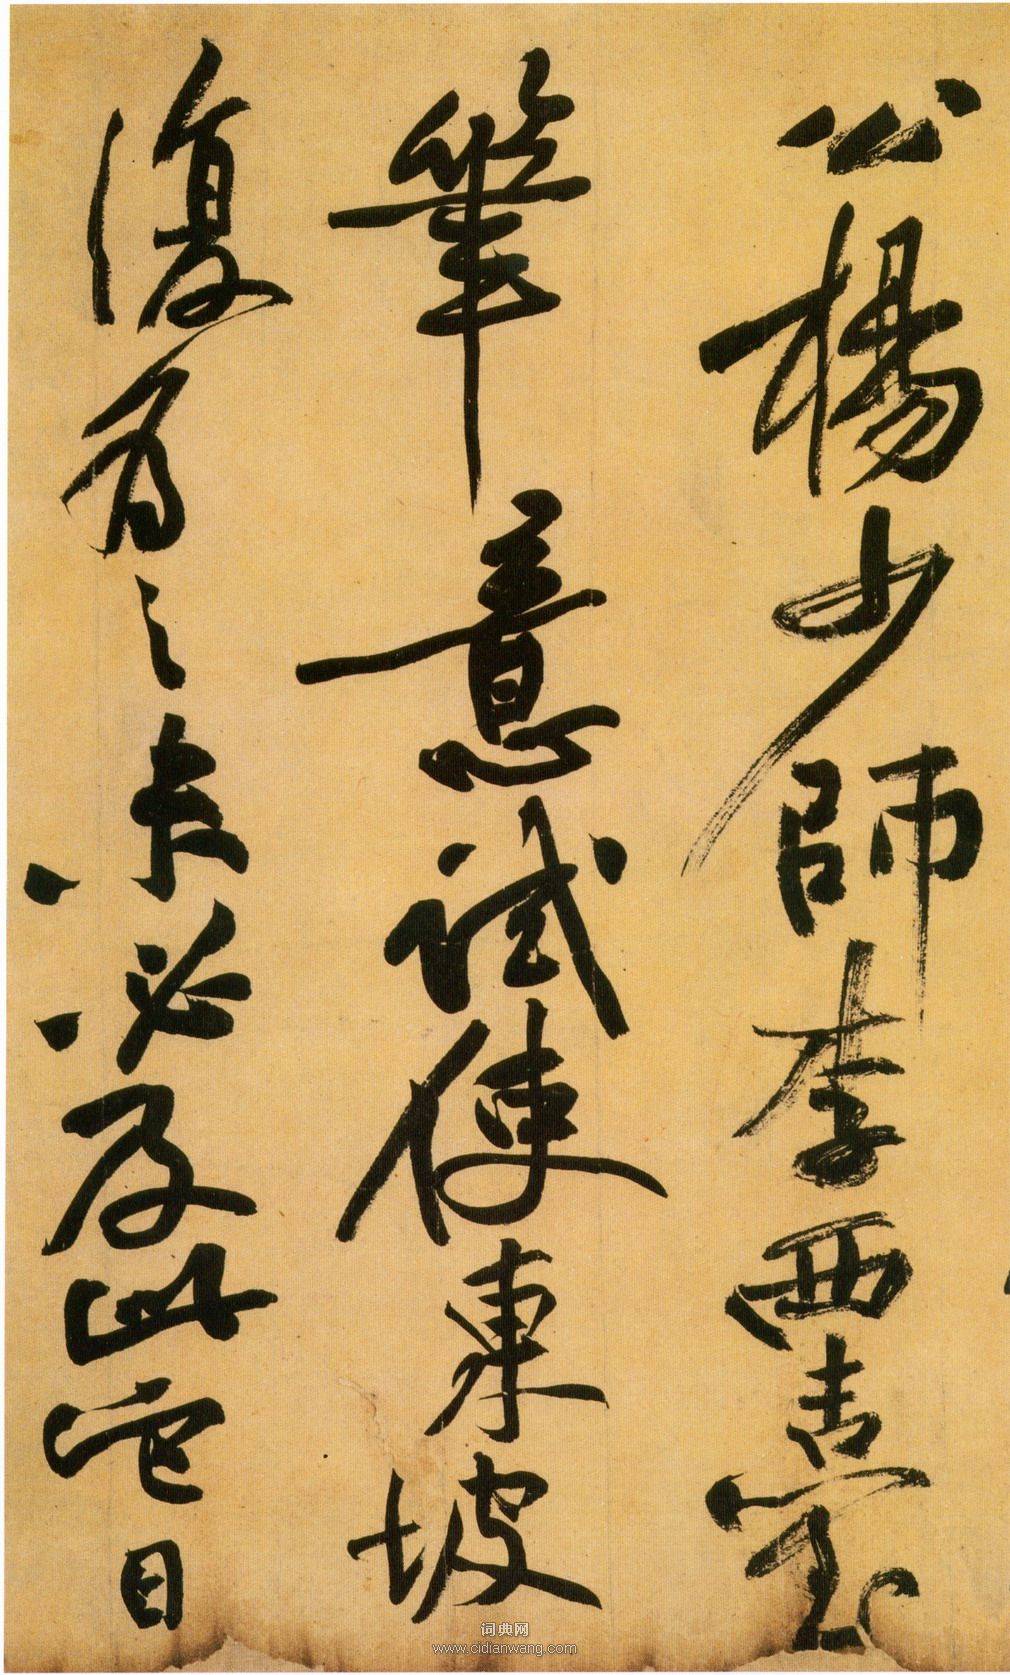 公楊少師李西臺
筆意試使東坡
復為之未必及此它日
词典网
www.cidianwang.com